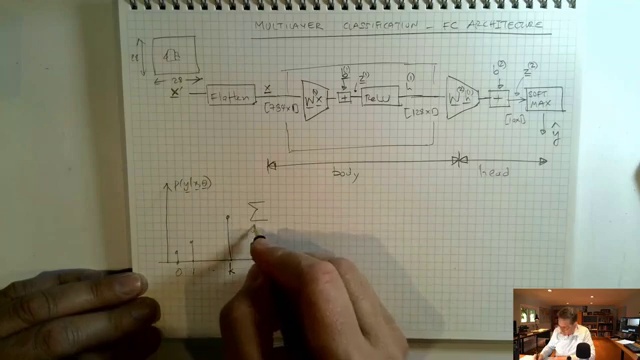 MULTILAYER CLASSIFICATION - FC ARCHITECTURE
28
28
x'
Flatten
x
[784x1]
W⁽¹⁾x
b⁽¹⁾
+
z⁽¹⁾
ReLU
h⁽¹⁾
[128x1]
W⁽²⁾h⁽¹⁾
b⁽²⁾
+
z⁽²⁾
SOFT
MAX
ŷ
body
head
p(y|x;θ)
Σ
0
1
k